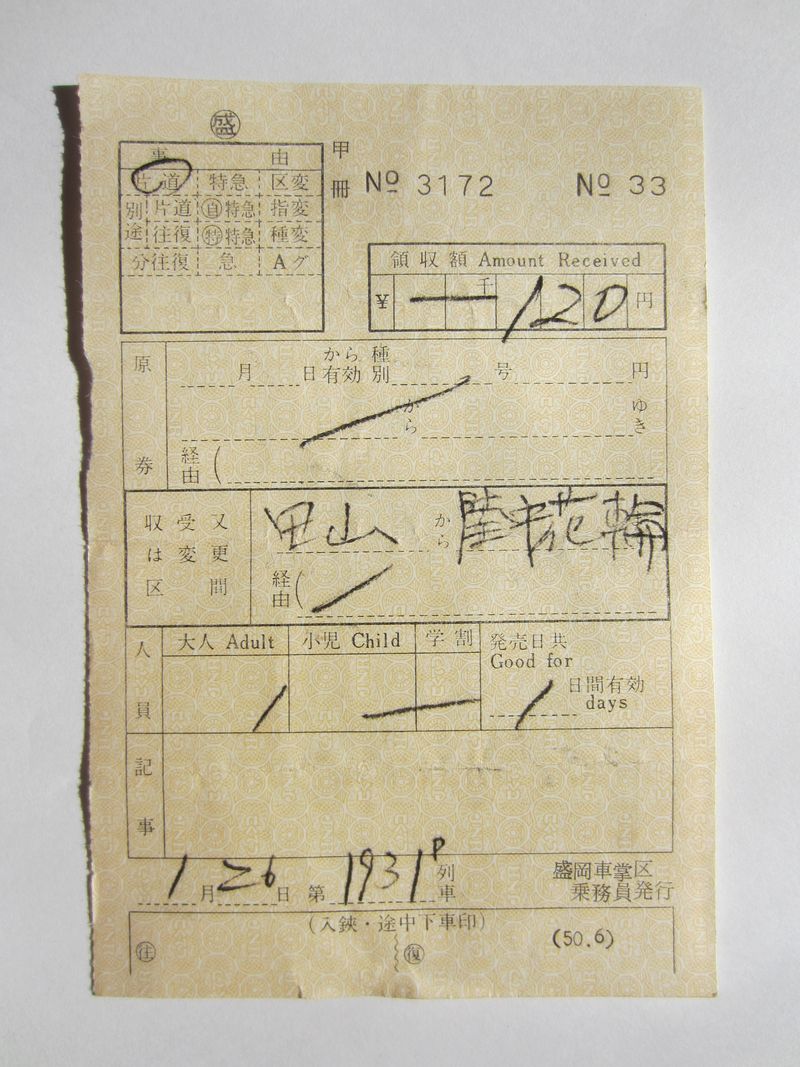 ㊝盛
事由
片道 特急 区変
別途 片道 ㊐特急 指変
往復 ㊕特急 種変
分往復 急 Aグ
甲 冊 № 3172 № 33
領収額 Amount Received
¥ — 千 120 円
原券
月 日 から有効 種別 号 円
から ゆき
経由(
収受又は変更区間
田山 から 陸中花輪
経由(
人員
大人 Adult 小児 Child 学割 発売日共
Good for
1 — 1 日間有効
days
記事
1月26日 第1931P列車 盛岡車掌区
乗務員発行
(入鋏・途中下車印)
㊟往 ㊟復 (50.6)